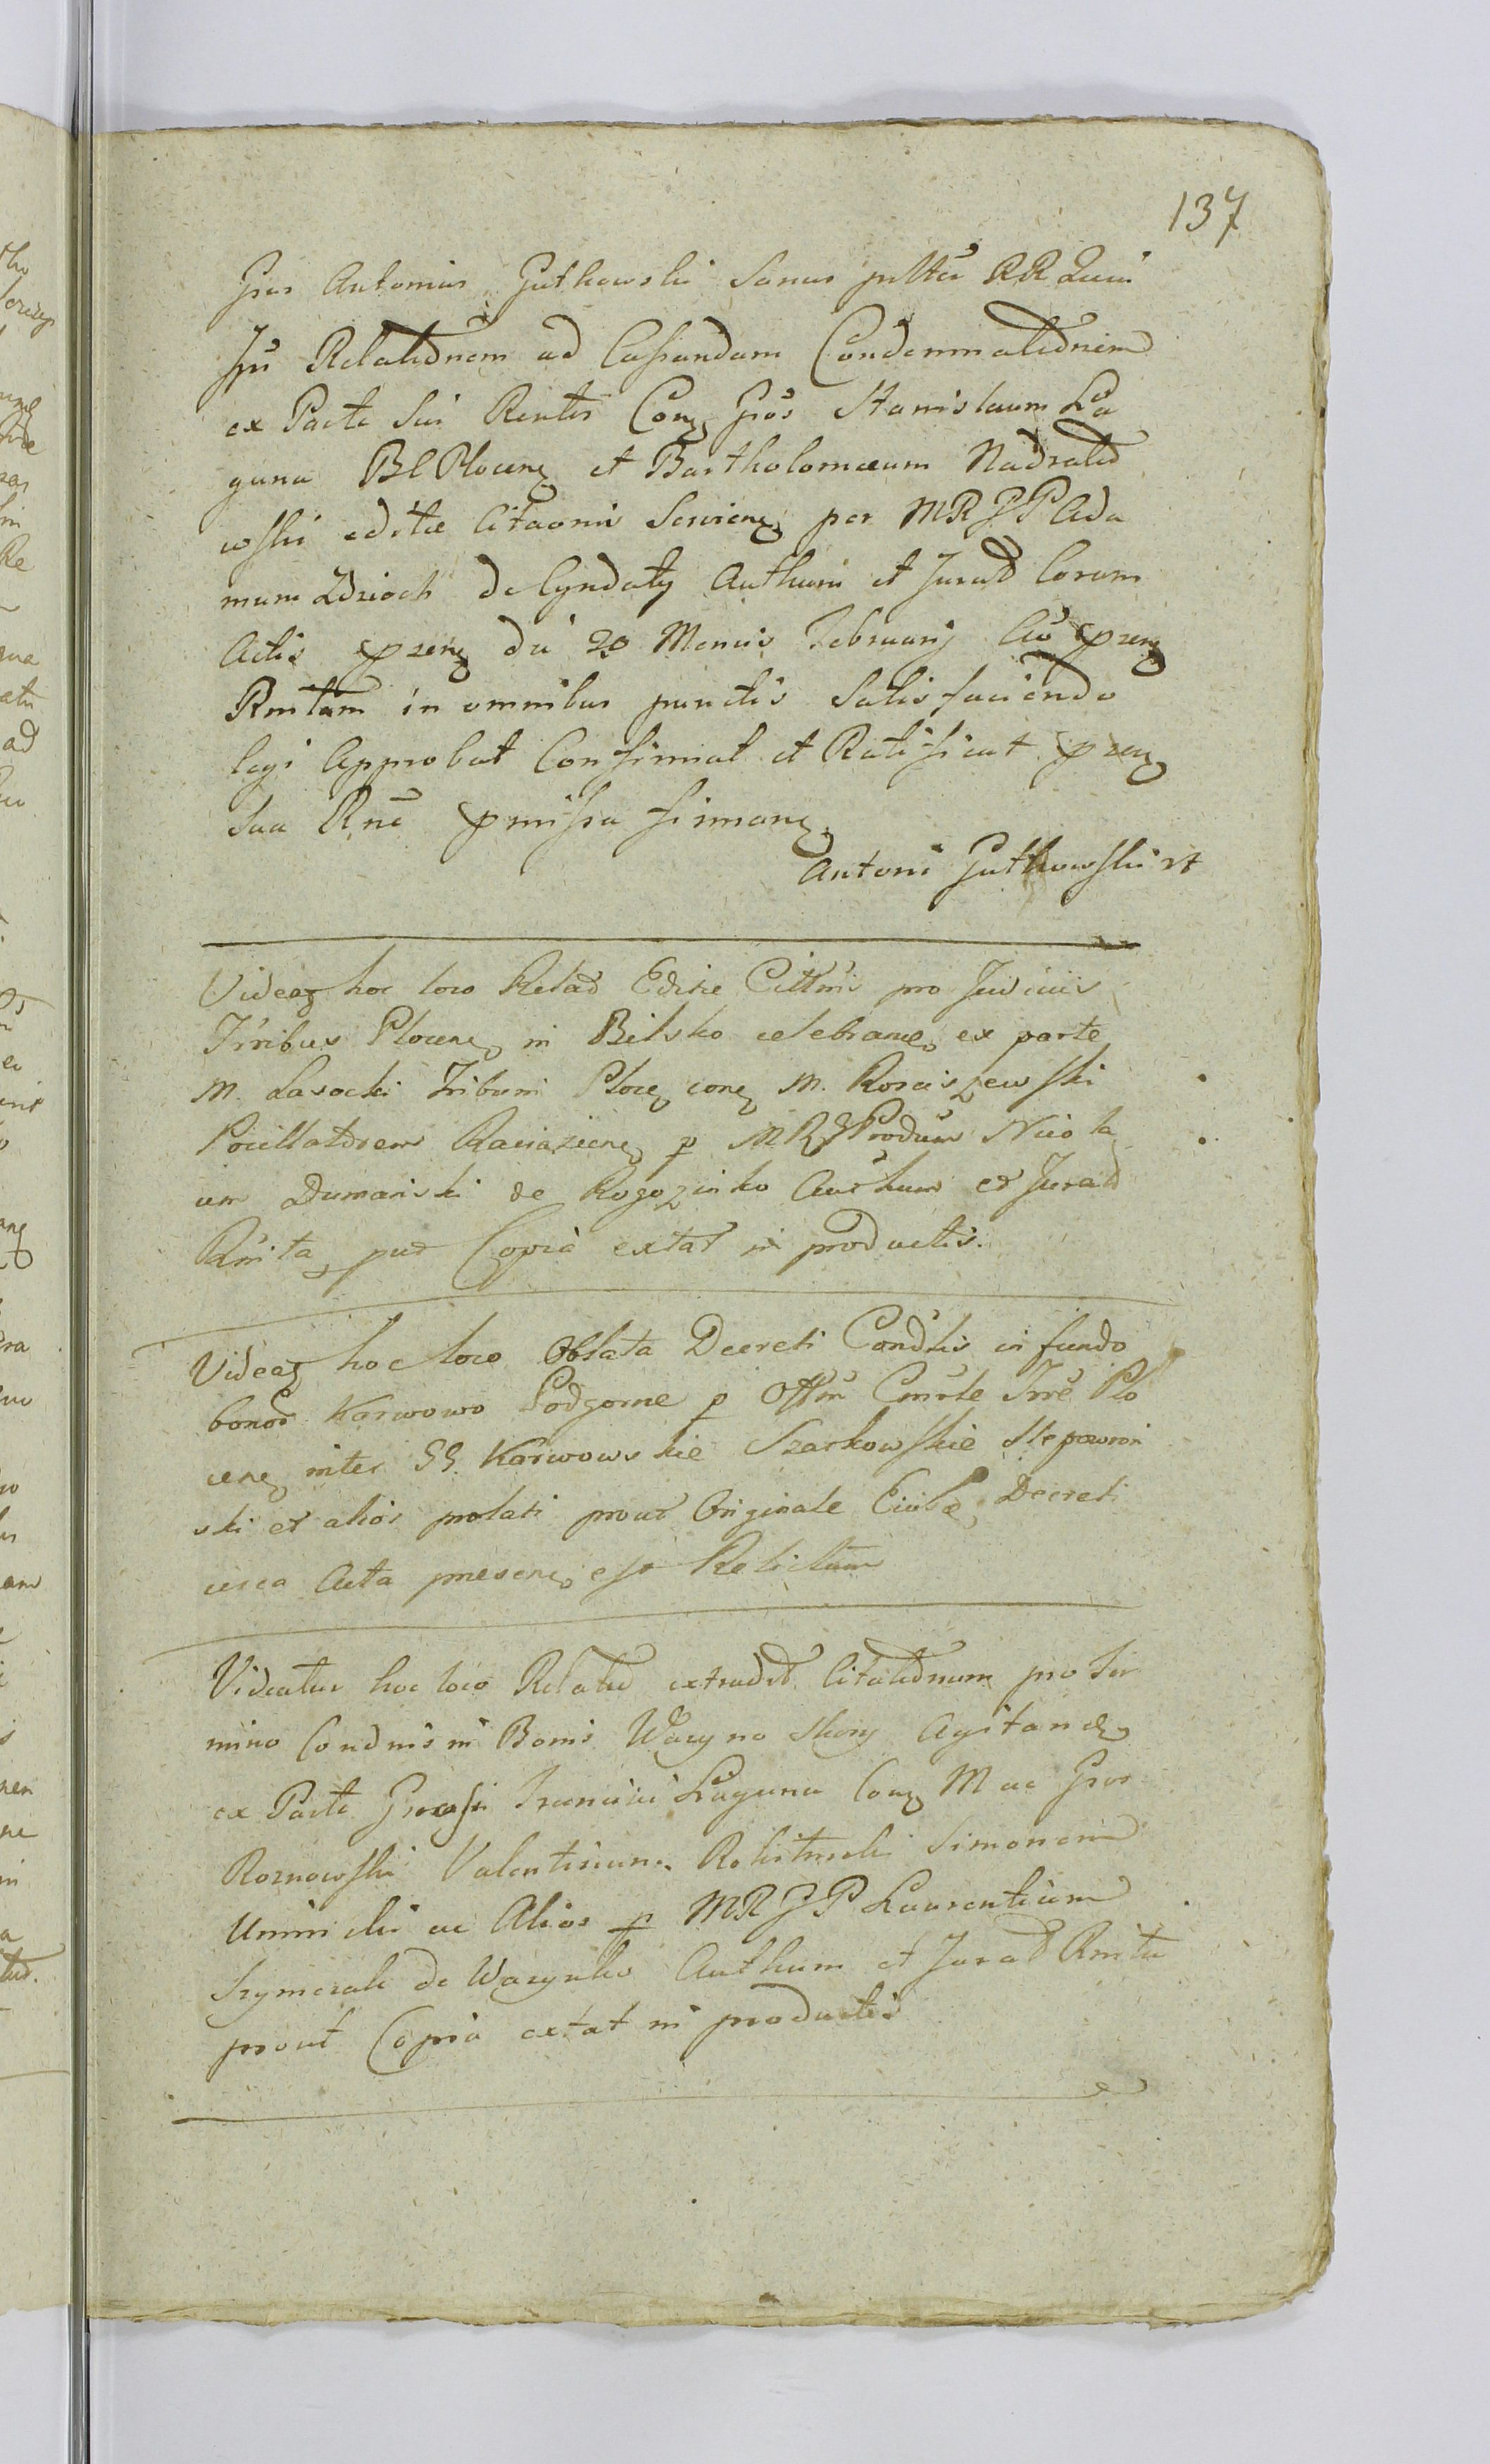 137
Gsus Antonius Gutkowski Sanus RR Quia
Relatiõnem ad Cassandam Condemnatiõnem
ex Parte Sui Rentis Conẓ Gsos Stanislaum La
guna BC Plocenẓ et Bartholomæum Nadratow
wski editæ Citaõnis Servienẓ per MRJP Ada
mum Zdzioch de Cyndaty Authum et Jurat Coram
Actis pzenẓ die 20 Mensis Februarij Aõ pzenẓ
Rmtam in omnibus punctis Satisfaciendo
legi Approbat Confirmat et Ratificat pzenẓ
Sua Rnẽ pmissa firmanẓ
Antoni Gutkowski
Videaẓ hoc loco Relaõ Editæ Cittnis pro Judiciis
Trribus Plocenẓ in Bilsko celebranẓ ex parte
M. Lasocki Tribuni Plocẓ conẓ M. Rosciszewski
Pocillatorem Raciążenẓ p MRJProdum Nicola
um Dumański de Rogozinko Authum et Jurat
Rmita, put Copia extat in productis.
Videaẓ hoc loco Oblata Decreti Condlis in fundo
bonor Karwowo Podgorne p Offm Cmrle Trrẽ Plo
cenẓ inter GG. Karwowskie Szarkowskie Slepowron
ski et alios prolati prout Originale Eiusdẽ Decreti
circa Acta presenẓ est Relictum
Videatur hoc loco Relatio extradit Citatiõnum pro Ter
mino Condnis in Bonis Wązyno Skory Agitandẓ
ex Parte Grossi Francisci Łaguna Conẓ M ac Gsos
Roznowski Valentinum Rokitnicki Simonem
Uminski ac Alios p MRJP Laurentium
Szymczak de Wazynko Authum et Jurat Rmta
prout Copia extat in productis